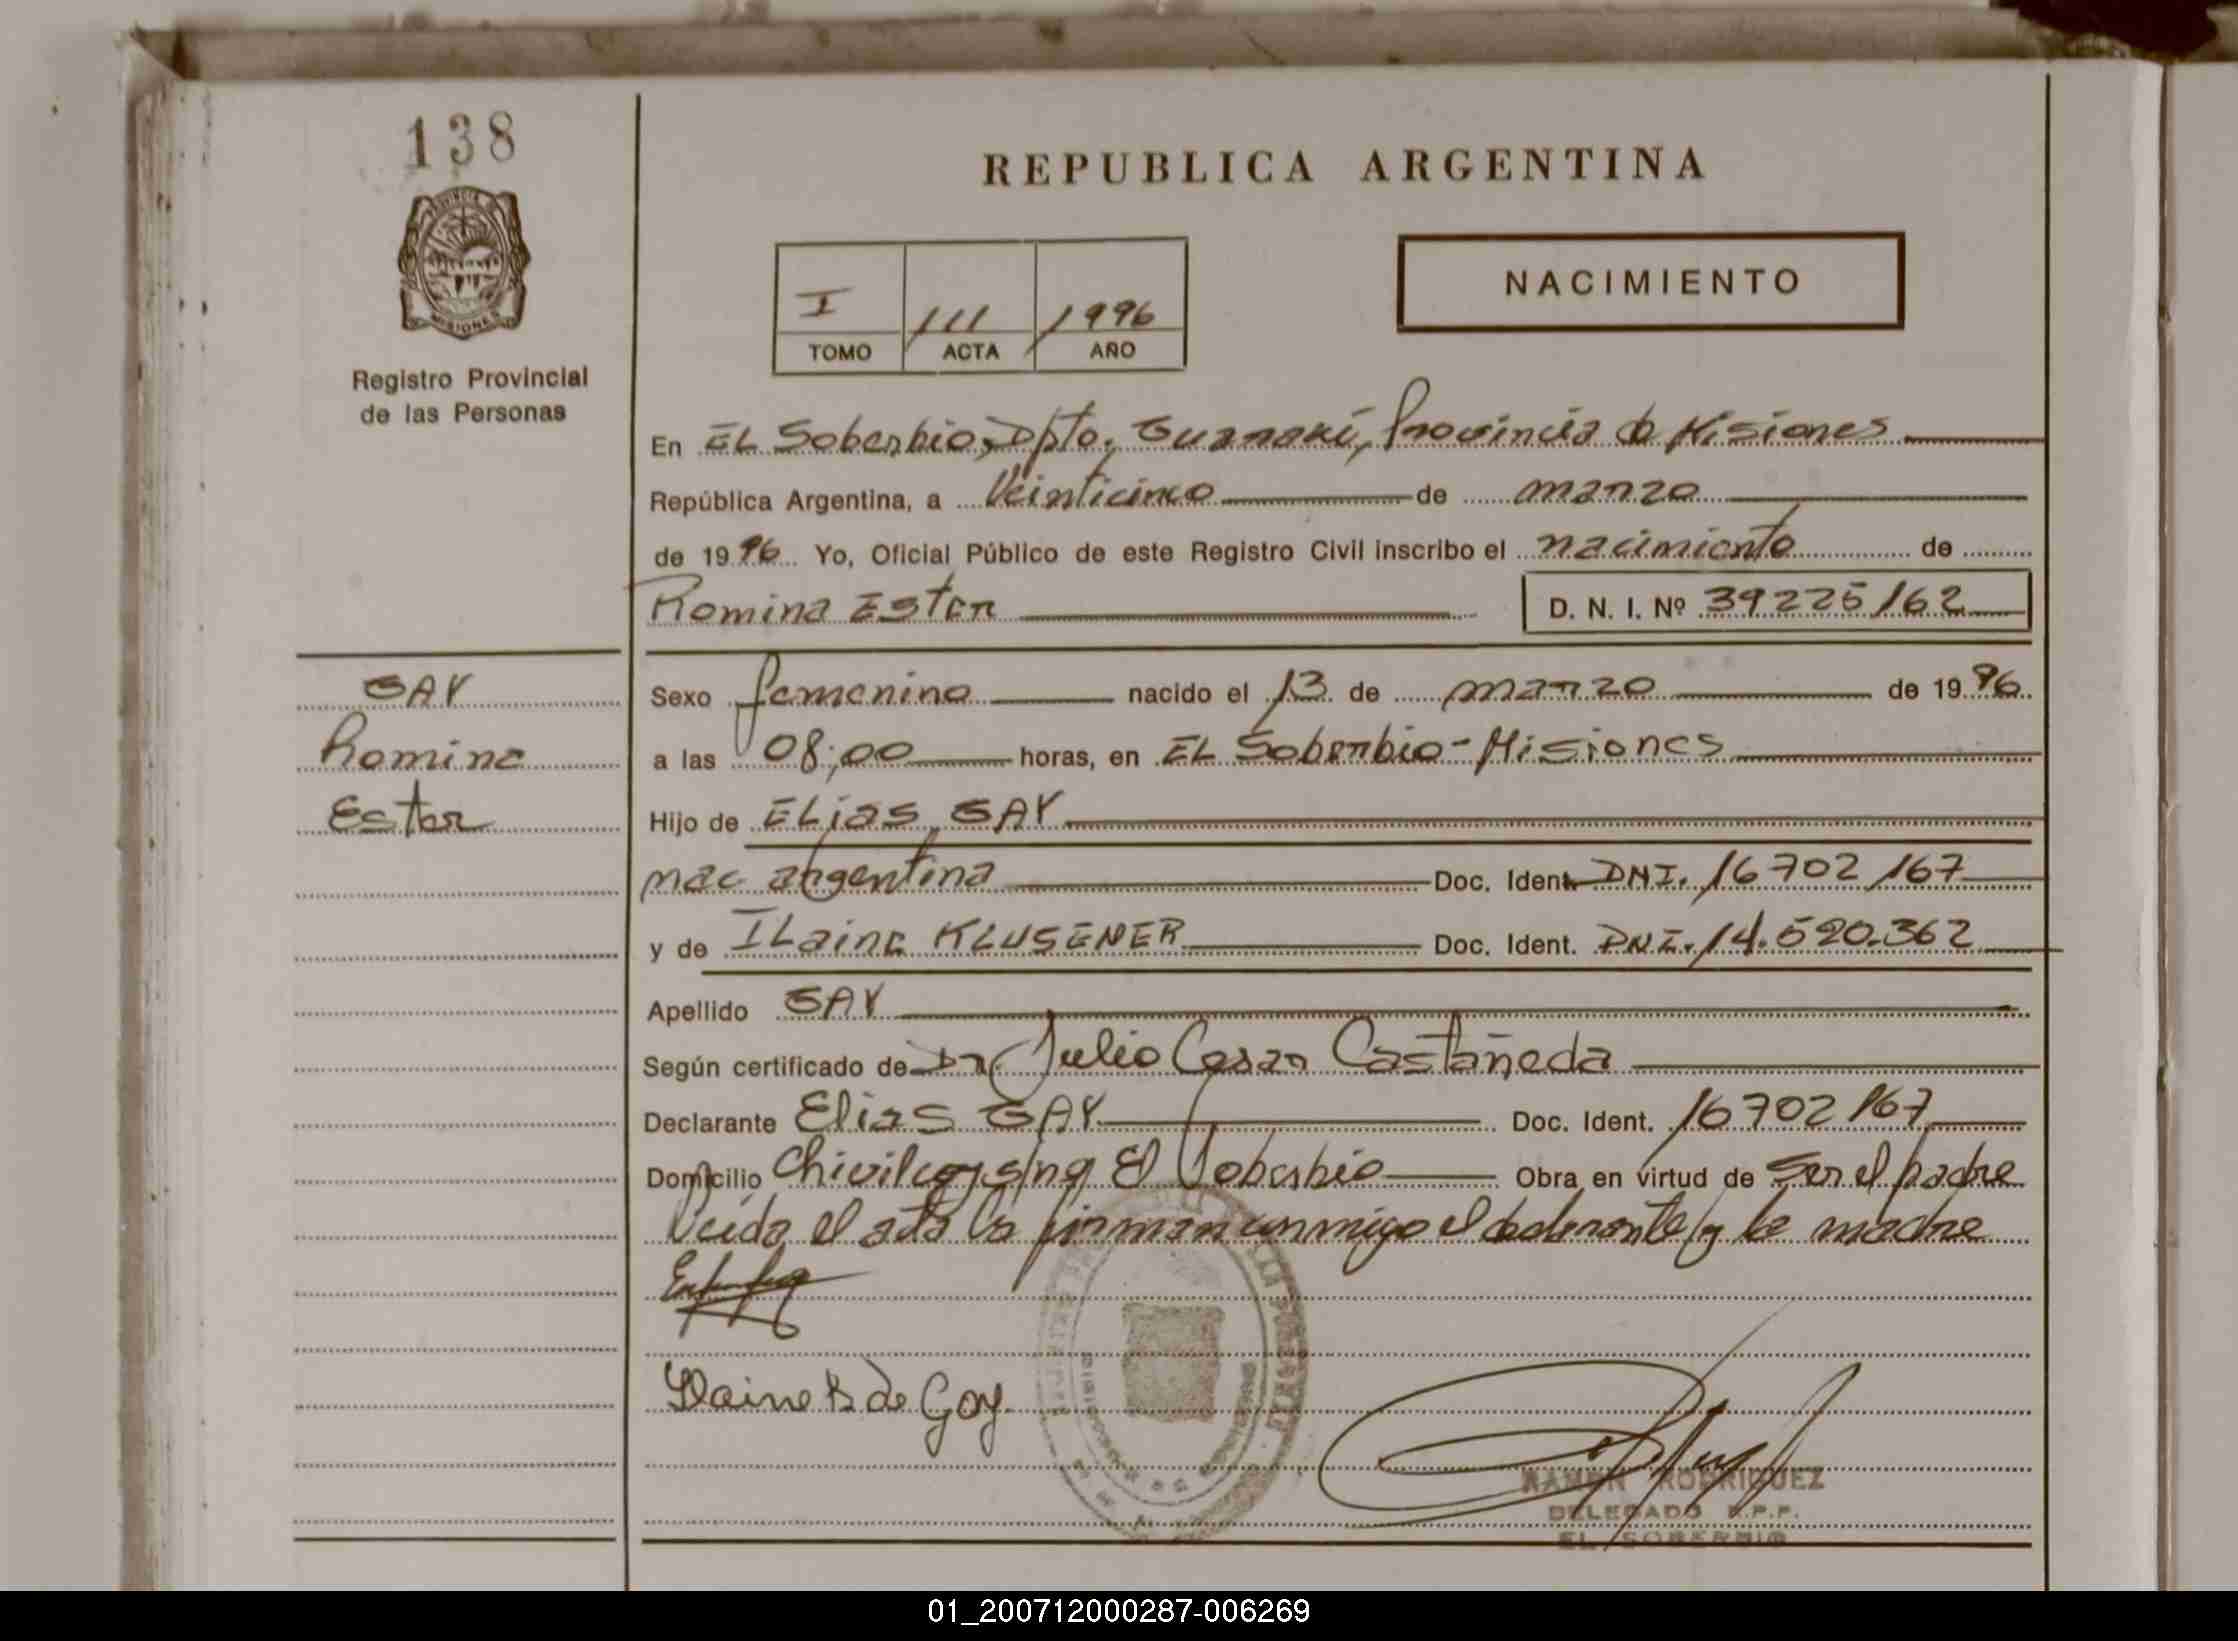 138
REPUBLICA ARGENTINA
PROVINCIA DE
MISIONES
Registro Provincial
de las Personas
I 111 1996
TOMO ACTA AÑO
NACIMIENTO
En EL Soberbio, Dpto. Guaraní, Provincia de Misiones
República Argentina, a Veinticinco de marzo
de 1996 Yo, Oficial Público de este Registro Civil inscribo el nacimiento de
Romina Ester D. N. I. Nº 39225162
GAY
Romina
Ester
Sexo femenino nacido el 13 de marzo de 1996
a las 08,00 horas, en EL Soberbio-Misiones
Hijo de ELias GAY
nac argentina Doc. Ident. DNI. 16702167
y de ILaine KLUSENER Doc. Ident. DNI. 14.520.362
Apellido GAY
Según certificado de Dr. Julio Cesar Castañeda
Declarante Elias GAY Doc. Ident. 16702167
Domicilio Chivilcoy s/nq El Soberbio Obra en virtud de Ser el padre
Leida el acta la firman conmigo el declarante y la madre
de Goy
RAMON RODRIGUEZ
DELEGADO R.P.P.
EL SOBERBIO
01_200712000287-006269